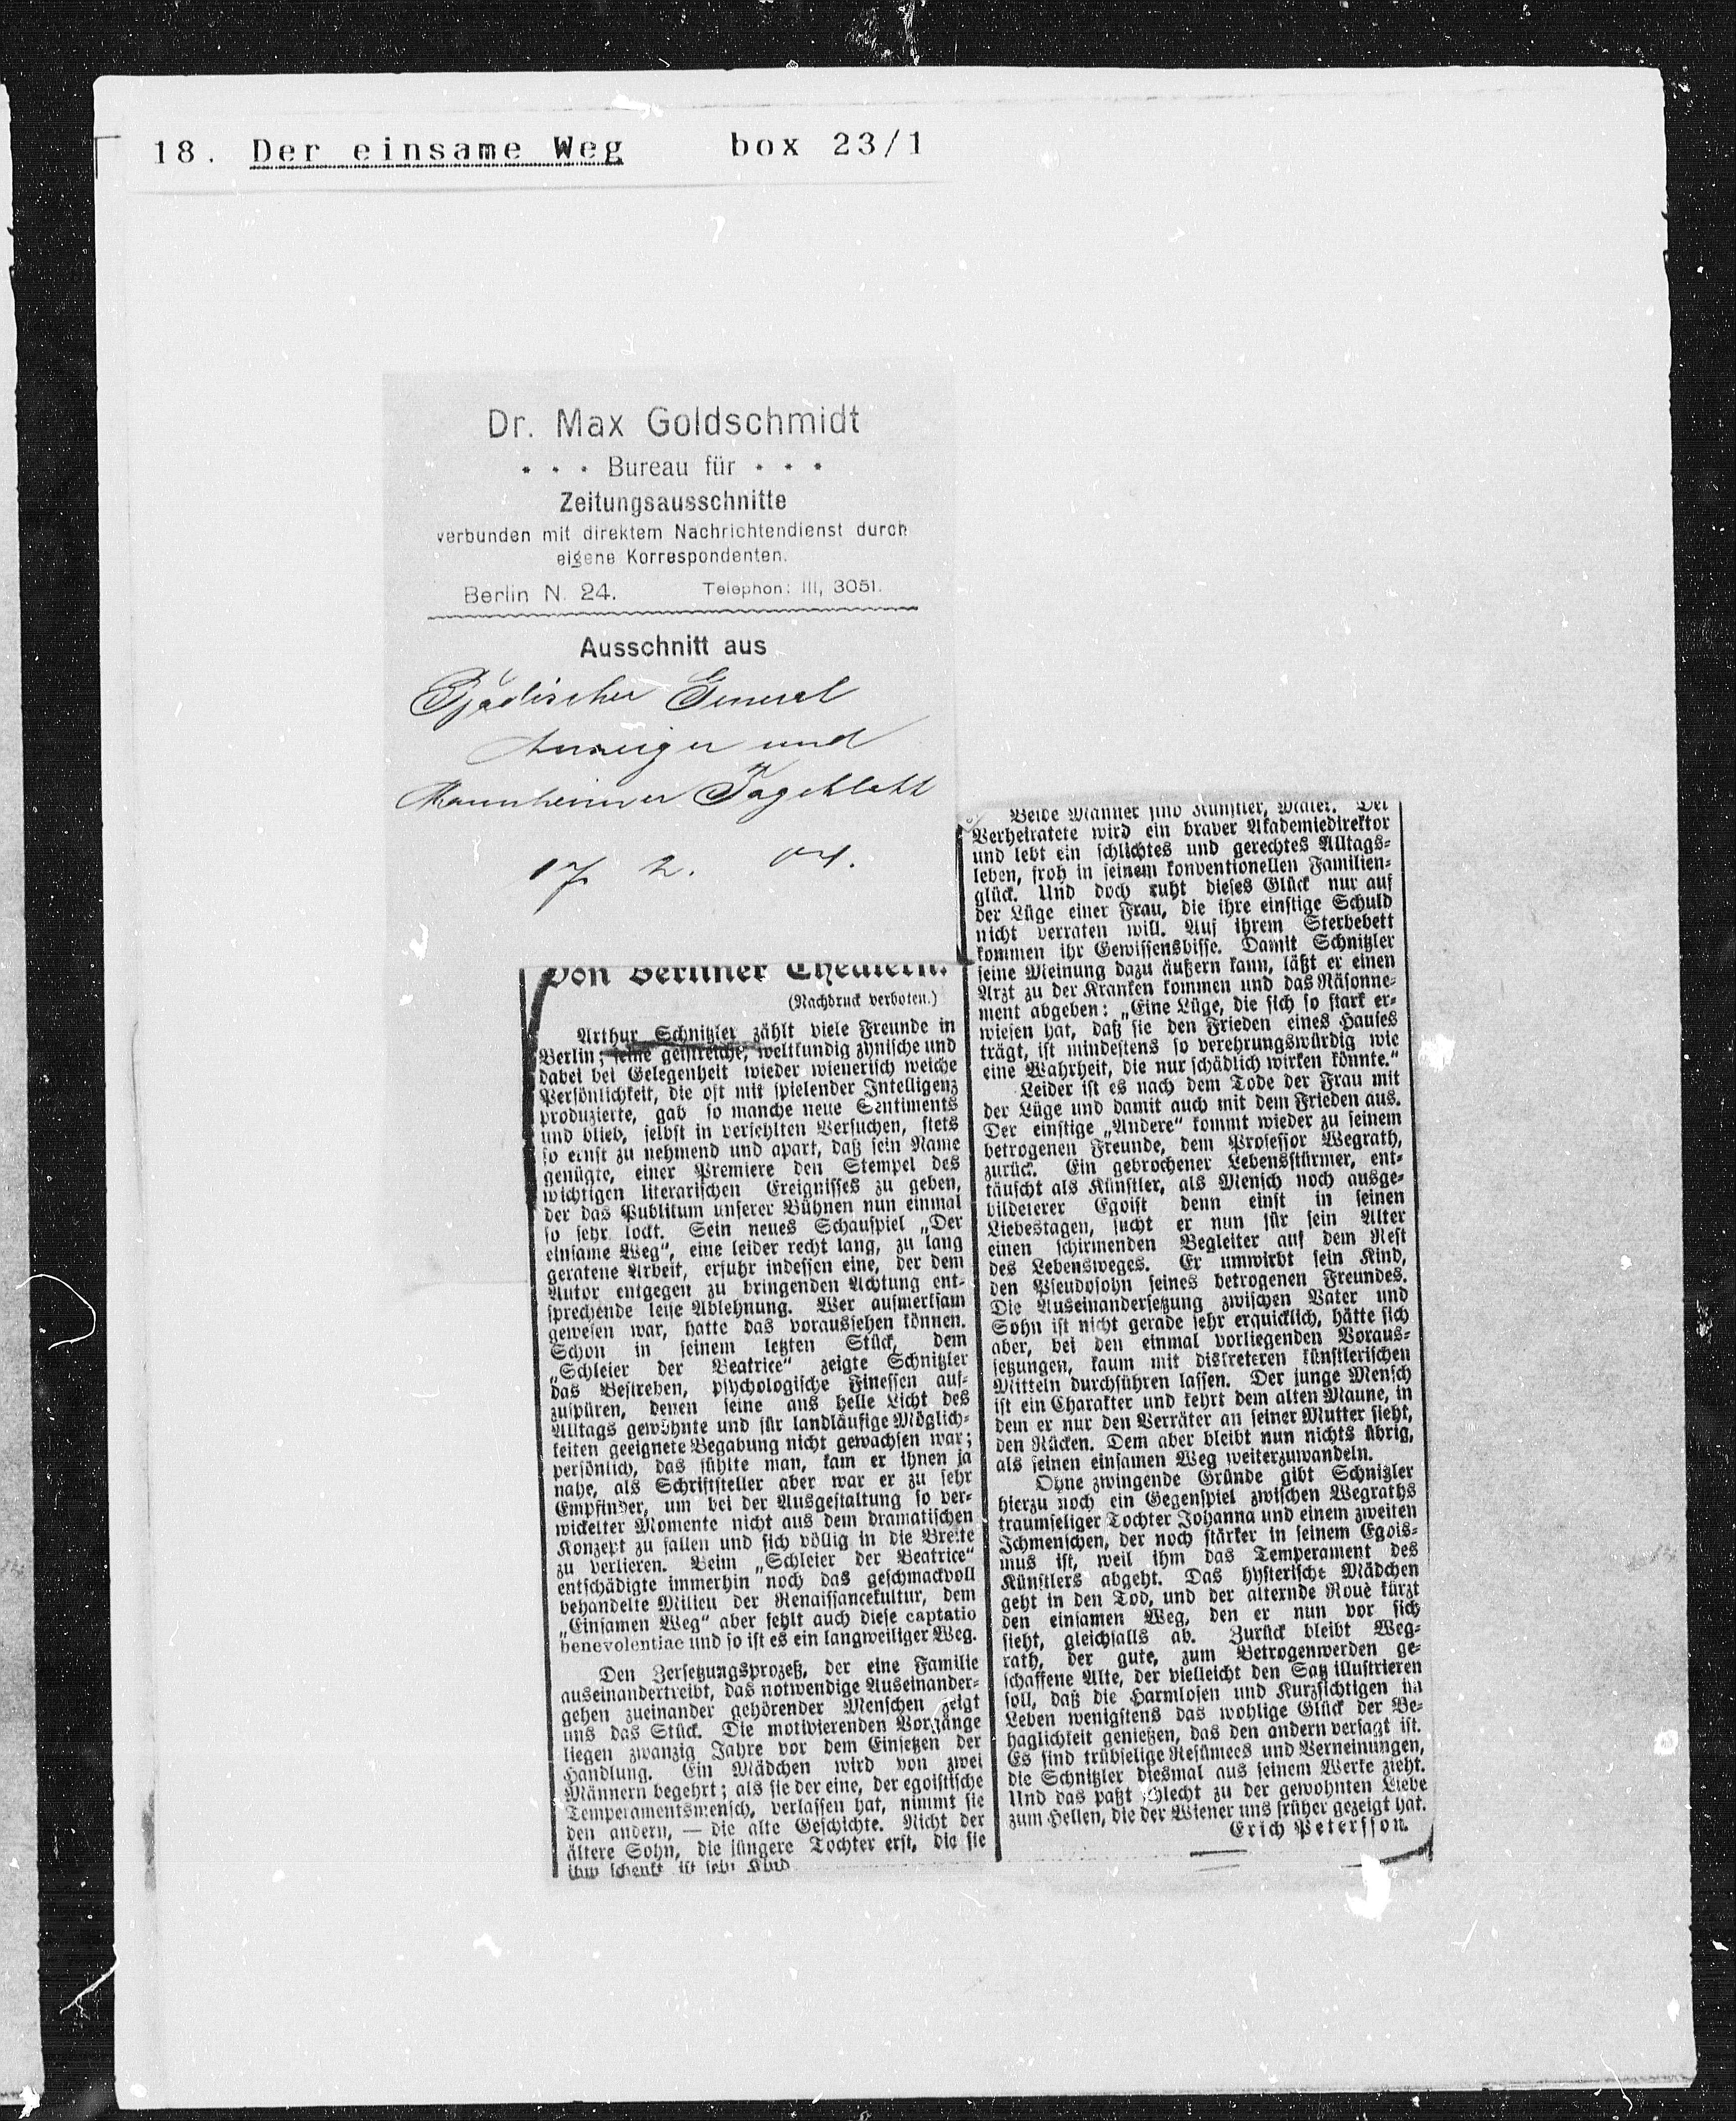 18. Der einsame Weg box 23/1
Dr. Max Goldschmidt
Bureau für
Zeitungsausschnitte
verbunden mit direktem Nachrichtendienst durch
eigene Korrespondenten.
Berlin N. 24. Telephon: III, 3051.
Ausschnitt aus
Badischer General
Anzeiger und
Mannheimer Tageblatt
17. 2. 04.
Von Berliner Theatern.
(Nachdruck verboten.)
Arthur Schnitzler zählt viele Freunde in
Berlin; seine geistreiche, weltkundig zynische und
dabei bei Gelegenheit wieder wienerisch weiche
Persönlichkeit, die oft mit spielender Intelligenz
produzierte, gab so manche neue Sentiments
und blieb, selbst in verfehlten Versuchen, stets
so ernst zu nehmend und apart, daß sein Name
genügte, einer Premiere den Stempel des
wichtigen literarischen Ereignisses zu geben,
der das Publikum unserer Bühnen nun einmal
so sehr lockt. Sein neues Schauspiel „Der
einsame Weg“, eine leider recht lang, zu lang
geratene Arbeit, erfuhr indessen eine, der dem
Autor entgegen zu bringenden Achtung ent-
sprechende leise Ablehnung. Wer aufmerksam
gewesen war, hatte das voraussehen können.
Schon in seinem letzten Stück, dem
„Schleier der Beatrice“ zeigte Schnitzler
das Bestreben, psychologische Finessen auf-
zuspüren, denen seine ans helle Licht des
Alltags gewöhnte und für landläufige Möglich-
keiten geeignete Begabung nicht gewachsen war;
persönlich, das fühlte man, kam er ihnen ja
nahe, als Schriftsteller aber war er zu sehr
Empfinder, um bei der Ausgestaltung so ver-
wickelter Momente nicht aus dem dramatischen
Konzept zu fallen und sich völlig in die Breite
zu verlieren. Beim „Schleier der Beatrice“
entschädigte immerhin noch das geschmackvoll
behandelte Milieu der Renaissancekultur, dem
„Einsamen Weg“ aber fehlt auch diese captatio
benevolentiae und so ist es ein langweiliger Weg.
Den Zersetzungsprozeß, der eine Familie
auseinandertreibt, das notwendige Auseinander-
gehen zueinander gehörender Menschen zeigt
uns das Stück. Die motivierenden Vorgänge
liegen zwanzig Jahre vor dem Einsetzen der
Handlung. Ein Mädchen wird von zwei
Männern begehrt; als sie der eine, der egoistische
Temperamentsmensch, verlassen hat, nimmt sie
den andern, — die alte Geschichte. Nicht der
ältere Sohn, die jüngere Tochter erst, die sie
ihm schenkt ist sein Kind
Beide Männer sind Künstler, Maler. Der
Verheiratete wird ein braver Akademiedirektor
und lebt ein schlichtes und gerechtes Alltags-
leben, froh in seinem konventionellen Familien-
glück. Und doch ruht dieses Glück nur auf
der Lüge einer Frau, die ihre einstige Schuld
nicht verraten will. Auf ihrem Sterbebett
kommen ihr Gewissensbisse. Damit Schnitzler
seine Meinung dazu äußern kann, läßt er einen
Arzt zu der Kranken kommen und das Räsonne-
ment abgeben: „Eine Lüge, die sich so stark er-
wiesen hat, daß sie den Frieden eines Hauses
trägt, ist mindestens so verehrungswürdig wie
eine Wahrheit, die nur schädlich wirken könnte.“
Leider ist es nach dem Tode der Frau mit
der Lüge und damit auch mit dem Frieden aus.
Der einstige „Andere“ kommt wieder zu seinem
betrogenen Freunde, dem Professor Wegrath,
zurück. Ein gebrochener Lebensstürmer, ent-
täuscht als Künstler, als Mensch noch ausge-
bildeterer Egoist denn einst in seinen
Liebestagen, sucht er nun für sein Alter
einen schirmenden Begleiter auf dem Rest
des Lebensweges. Er umwirbt sein Kind,
den Pseudosohn seines betrogenen Freundes.
Die Auseinandersetzung zwischen Vater und
Sohn ist nicht gerade sehr erquicklich, hätte sich
aber, bei den einmal vorliegenden Voraus-
setzungen, kaum mit diskreteren künstlerischen
Mitteln durchführen lassen. Der junge Mensch
ist ein Charakter und kehrt dem alten Manne, in
dem er nur den Verräter an seiner Mutter sieht,
den Rücken. Dem aber bleibt nun nichts übrig,
als seinen einsamen Weg weiterzuwandeln.
Ohne zwingende Gründe gibt Schnitzler
hierzu noch ein Gegenspiel zwischen Wegraths
traumseliger Tochter Johanna und einem zweiten
Ichmenschen, der noch stärker in seinem Egois-
mus ist, weil ihm das Temperament des
Künstlers abgeht. Das hysterische Mädchen
geht in den Tod, und der alternde Roué kürzt
den einsamen Weg, den er nun vor sich
sieht, gleichfalls ab. Zurück bleibt Weg-
rath, der gute, zum Betrogenwerden ge-
schaffene Alte, der vielleicht den Satz illustrieren
soll, daß die Harmlosen und Kurzsichtigen im
Leben wenigstens das wohlige Glück der Be-
haglichkeit genießen, das den andern versagt ist.
Es sind trübselige Resümees und Verneinungen,
die Schnitzler diesmal aus seinem Werke zieht.
Und das paßt schlecht zu der gewohnten Liebe
zum Hellen, die der Wiener uns früher gezeigt hat.
Erich Petersson.